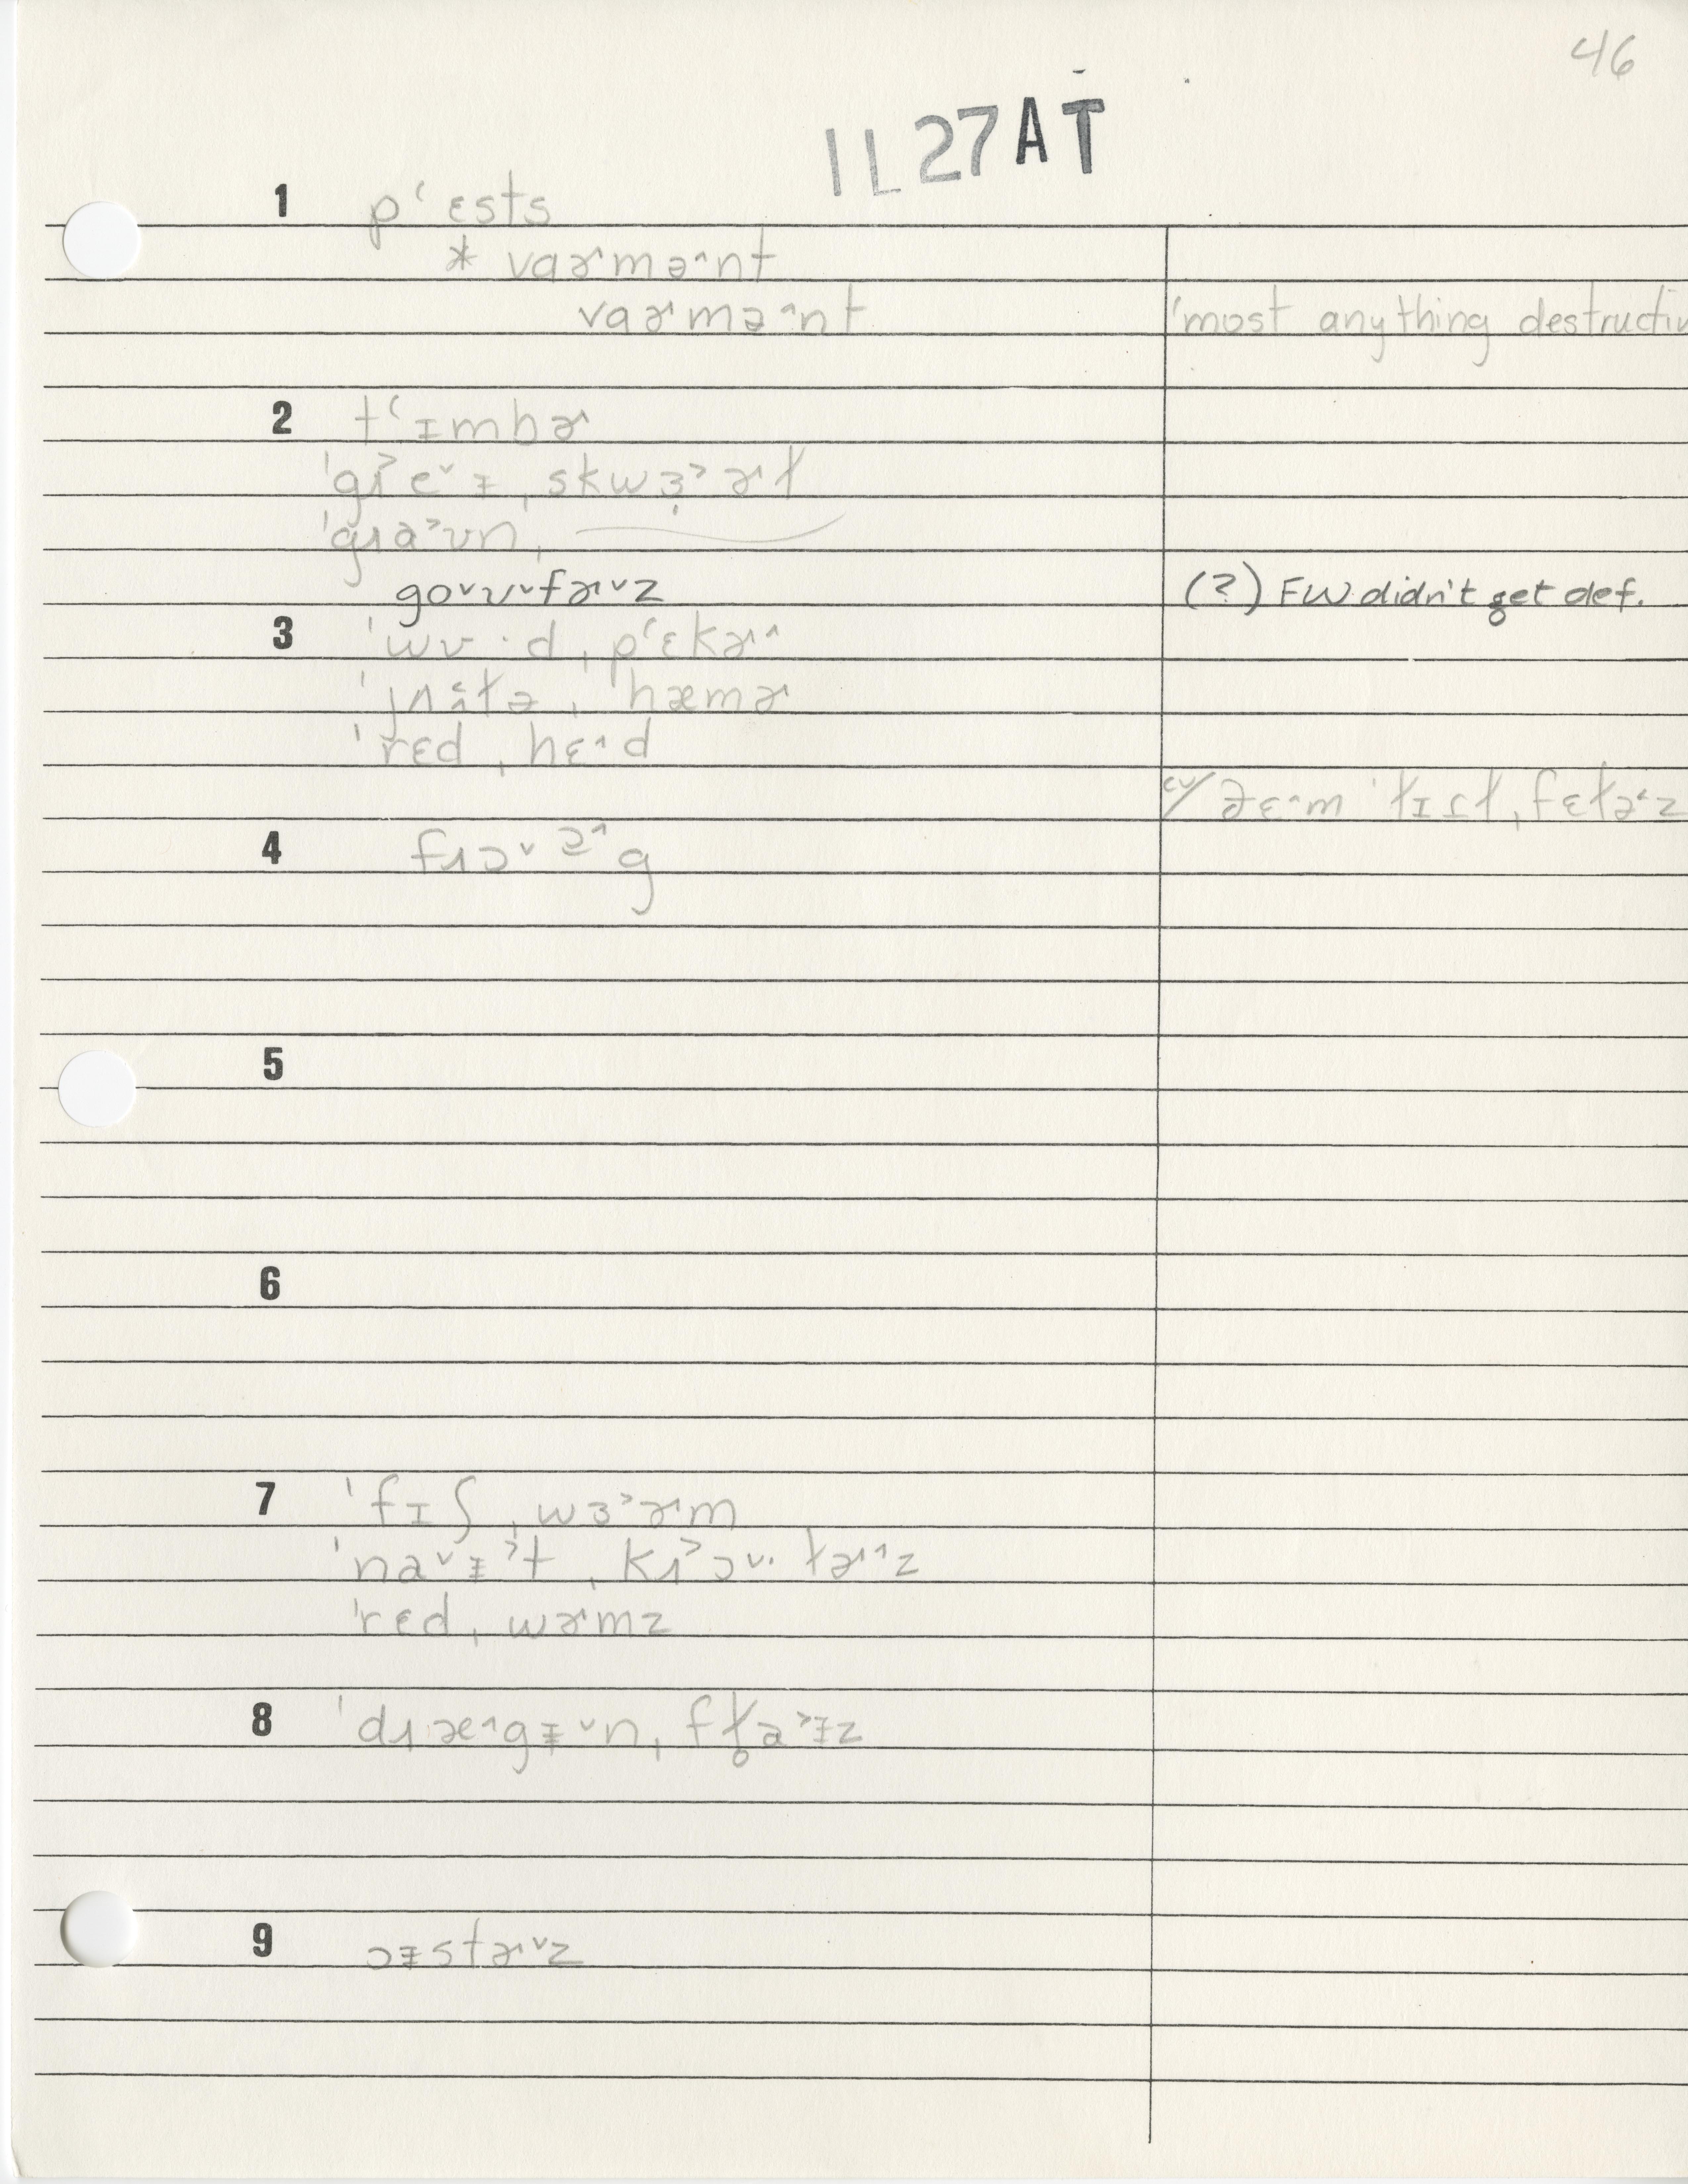 46
IL27AT
1 pʻɛsts
* vaɚmə^nt
vaɚmə^nt 'most anything destructiv
2 tʻɪmbɚ
ˈgɹ˃eˇᵻˌskwɜ̣˃ɚɫ
ˈgɹa˃ʊnˌ——
goˇʊˇfɚˇz (?) FW didn't get def.
3 ˈwʊ·dˌpʻɛkɚ^
ˈjʌ̂˂ɫəˌˈhæmɚ
ˈrɛdˌhɛ^d
cv/ ðɛ^m ˈɫɪɾɫˌfɛɫə˂z
4 fɹɔˇə^g
5
6
7 ˈfɪʃˌwɜ˃ɚm
ˈnaˇᵻ˃tˌkɹ˃ɔˇ·ɫɚ^z
ˈrɛdˌwɚmz
8 ˈdɹæ^gᵻˇnˌfɫ̥a˃ᵻz
9 ɔᵻstɚˇz